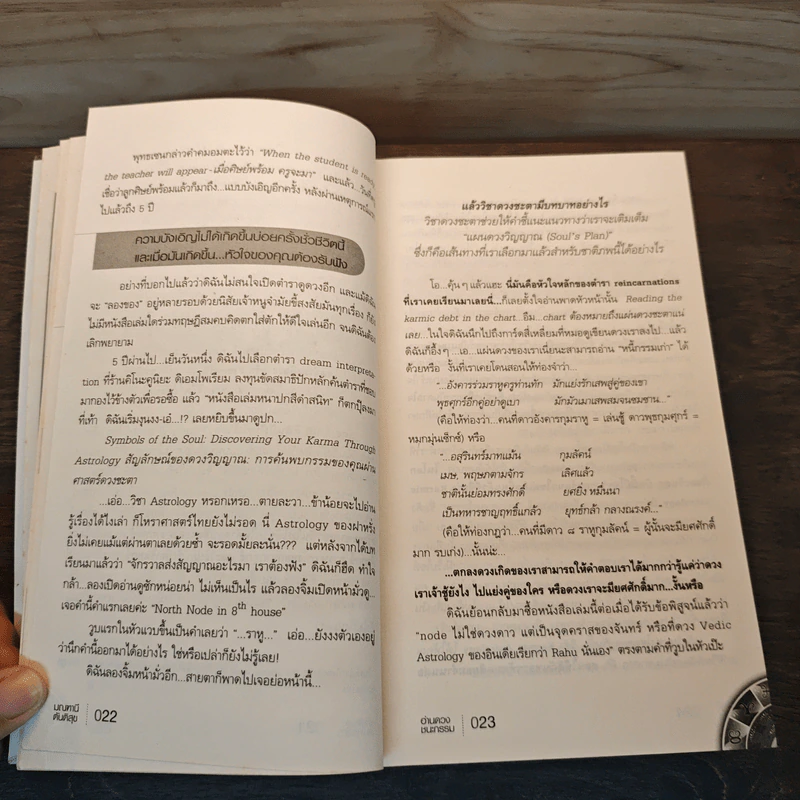 พุทธเซนกล่าวคำคมอมตะไว้ว่า "When the student is ready,
the teacher will appear-เมื่อศิษย์พร้อม ครูจะมา" และแล้ว...วันที่
เชื่อว่าลูกศิษย์พร้อมแล้วก็มาถึง...แบบบังเอิญอีกครั้ง หลังผ่านเหตุการณ์
ไปแล้วถึง 5 ปี
ความบังเอิญไม่ได้เกิดขึ้นบ่อยครั้งชั่วชีวิตนี้
และเมื่อมันเกิดขึ้น...หัวใจของคุณต้องรับฟัง
อย่างที่บอกไปแล้วว่าดิฉันไม่สนใจเปิดตำราดูดวงอีก และแม้
จะ "ลองของ" อยู่หลายรอบด้วยนิสัยเจ้าหนูจำไมขี้สงสัยมันทุกเรื่อง ก็ยัง
ไม่มีหนังสือเล่มใดร่วมทฤษฎีสมคบคิดตกใส่ตักให้ดีใจเล่นอีก จนดิฉันต้อง
เลิกพยายาม
5 ปีผ่านไป...เย็นวันหนึ่ง ดิฉันไปเลือกตำรา dream interpreta-
tion ที่ร้านคิโนะคูนิยะ ดิเอมโพเรียม ลงทุนขัดสมาธิปักหลักค้นตำราที่ชอบ
มากองไว้ข้างตัวเพื่อรอซื้อ แล้ว "หนังสือเล่มหนาปกสีดำสนิท" ก็ตกปุ๊ลงมา
ที่เท้า ดิฉันเริ่มงุนงง-เอ๋...!? เลยหยิบขึ้นมาดูปก...
Symbols of the Soul: Discovering Your Karma Through
Astrology สัญลักษณ์ของดวงวิญญาณ: การค้นพบกรรมของคุณผ่าน
ศาสตร์ดวงชะตา
...เอ่อ...วิชา Astrology หรอกเหรอ...ตายละวา...ข้าน้อยจะไปอ่าน
รู้เรื่องได้ไงเล่า ก็โหราศาสตร์ไทยยังไม่รอด นี่ Astrology ของฝาหรั่ง
ยิ่งไม่เคยแม้แต่ผ่านตาเลยด้วยซ้ำ จะรอดมั้ยละนั่น??? แต่หลังจากได้บท
เรียนมาแล้วว่า "จักรวาลส่งสัญญาณอะไรมา เราต้องฟัง" ดิฉันก็ฮึด ทำใจ
กล้า...ลองเปิดอ่านดูซักหน่อยน่า ไม่เห็นเป็นไร แล้วลองจิ้มเปิดหน้ามั่วดู...
เจอคำนี้คำแรกเลยค่ะ "North Node in 8th house"
วูบแรกในหัวแวบขึ้นเป็นคำเลยว่า "...ราหู..." เอ่อ...ยังงงตัวเองอยู่
ว่านึกคำนี้ออกมาได้อย่างไร ใช่หรือเปล่าก็ยังไม่รู้เลย!
ดิฉันลองจิ้มหน้ามั่วอีก...สายตาก็พาดไปเจอย่อหน้านี้...
มณฑานี
ตันติสุข
022
แล้ววิชาดวงชะตามีบทบาทอย่างไร
วิชาดวงชะตาช่วยให้คำชี้แนะแนวทางว่าเราจะเติมเต็ม
"แผนดวงวิญญาณ (Soul's Plan)"
ซึ่งก็คือเส้นทางที่เราเลือกมาแล้วสำหรับชาติภพนี้ได้อย่างไร
โอ...คุ้นๆ แล้วแฮะ นี่มันคือหัวใจหลักของตำรา reincarnations
ที่เราเคยเรียนมาเลยนี่...ก็เลยตั้งใจอ่านพาดหัวหน้านั้น Reading the
karmic debt in the chart. อืม...chart ต้องหมายถึงแผ่นดวงชะตาแน่
เลย...ในใจดิฉันนึกไปถึงการ์ดสี่เหลี่ยมที่หมอดูเขียนดวงเราลงไป...แล้ว
ดิฉันก็อึ้งๆ ...เอ...แผ่นดวงของเราเนี่ยนะสามารถอ่าน "หนี้กรรมเก่า" ได้
ด้วยหรือ งั้นที่เราเคยโดนสอนให้ท่องจำว่า...
"...อังคารร่วมราหูครูท่านทัก มักแย่งรักเสพสู่คู่ของเขา
พุธศุกร์อีกคู่อย่าดูเบา มักมัวเมาเสพสมจนซมซาน..."
(คือให้ท่องว่า...คนที่ดาวอังคารกุมราหู = เล่นชู้ ดาวพุธกุมศุกร์ =
หมกมุ่นเซ็กซ์) หรือ
"...อสุรินทร์มาทแม้น กุมลัคน์
เมษ, พฤษภตามจักร เลิศแล้ว
ชาตินั้นย่อมทรงศักดิ์ ยศยิ่ง หมื่นนา
เป็นทหารชาญฤทธิ์แกล้ว ยุทธ์กล้า กลางณรงค์..."
(คือให้ท่องกฎว่า...คนที่มีดาว ๘ ราหูกุมลัคน์ = ผู้นั้นจะมียศศักดิ์
มาก รบเก่ง)...นั้นน่ะ...
...ตกลงดวงเกิดของเราสามารถให้คำตอบเราได้มากกว่ารู้แค่ว่าดวง
เราเจ้าชู้ยังไง ไปแย่งคู่ของใคร หรือดวงเราจะมียศศักดิ์มาก...งั้นหรือ
ดิฉันย้อนกลับมาซื้อหนังสือเล่มนี้ต่อเมื่อได้รับข้อพิสูจน์แล้วว่า
"node ไม่ใช่ดวงดาว แต่เป็นจุดคราสของจันทร์ หรือที่ดวง Vedic
Astrology ของอินเดียเรียกว่า Rahu นั่นเอง" ตรงตามคำที่วูบในหัวเป๊ะ
อ่านดวง
ชนะกรรม
023